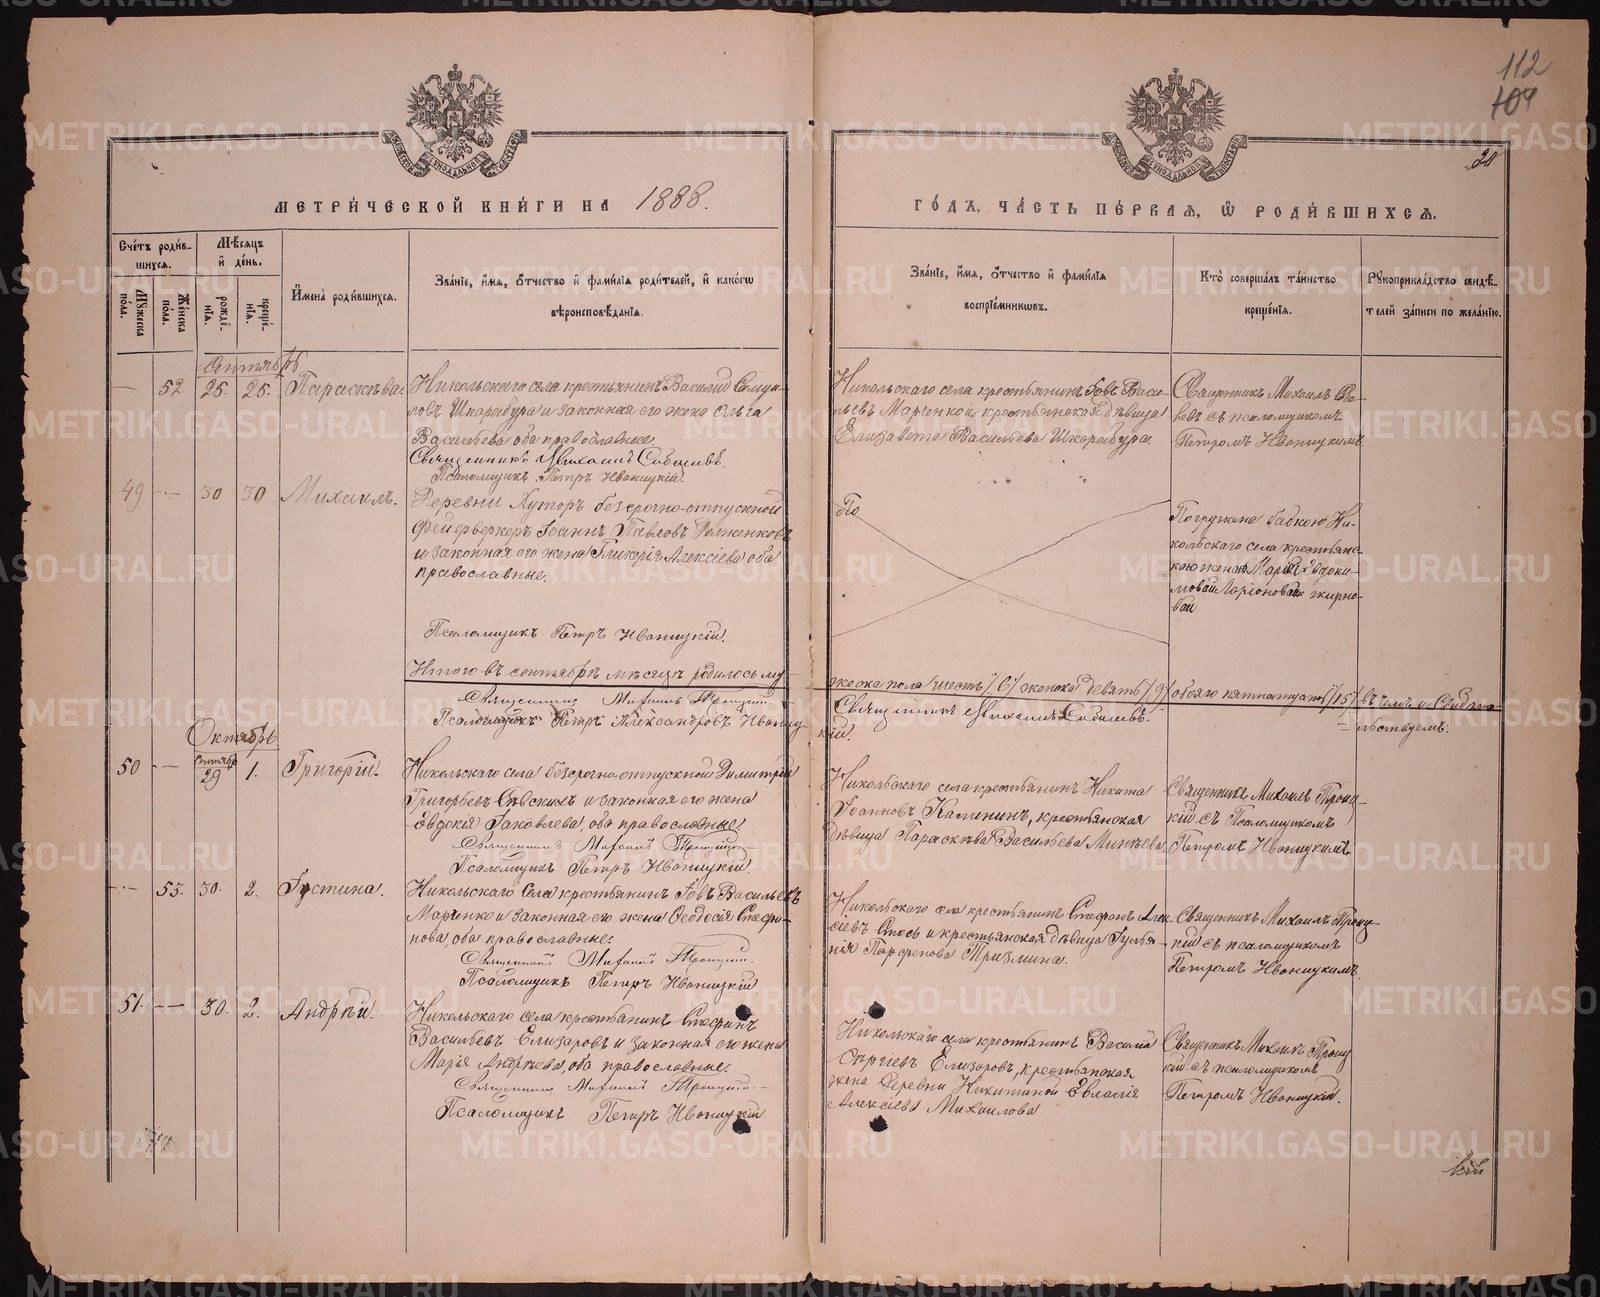 112
104
20
МЕТРИ́ЧЕСКОЙ КНИ́ГИ НА 1888.
ГО́ДЪ, ЧА́СТЬ ПЕ́РВАЯ, Ѡ РОДИ́ВШИХСЯ.
Сче́тъ роди́в-
шихся.
Му́жеска
по́ла.
Же́нска
по́ла.
Мѣ́сяцъ
и҆ де́нь.
рожде́-
нїя.
креще́-
нїя.
И҆мена̀ роди́вшихся.
Зва́нїе, и҆́мя, ѻ҆́тчество и҆ фами́лїя роди́телей, и҆ како́гѡ
вѣроисповѣ́данїя.
Зва́нїе, и҆́мя, ѻ҆́тчество и҆ фами́лїя
воспрїе́мникѡвъ.
Кто̀ соверша́лъ та́инство
креще́нїя.
Рꙋкоприкла́дство свидѣ́-
телей за́писи по жела́нїю.
Сентябрь
— 52 25. 25. Параскѣва.
Никольскаго села крестьянинъ Василій Самуи-
ловъ Шкарабура и законная его жена Ольга
Васильева оба православные.
Священникъ Михаилъ
Псаломщикъ Петръ Ивоницкій.
Никольскаго села крестьянинъ Іовъ Васи-
льевъ Марченко и крестьянская дѣвица
Елизавета Васильева Шкарабура.
Священникъ Михаилъ
съ псаломщикомъ
Петромъ Ивоницкимъ
49 — 30 30 Михаилъ.
Деревни Хуторъ безсрочно-отпускной
фейерверкеръ Іоаннъ Павловъ Долженковъ
и законная его жена Гликерія Алексіева оба
православные.
Псаломщикъ Петръ Ивоницкій.
Погружена бабкою Ни-
кольскаго села крестьянс-
кою женою Маріей Евдоки-
мовой Ларіоновой
Итого въ сентябрѣ мѣсяцѣ родилось му-
жеска пола шесть /6/ женска девять /9/ обоего пятнадцать /15/ въ чемъ и свидѣтель-
ствуемъ:
Священникъ Михаилъ Троицкій
Псаломщикъ Петръ Александровъ Ивониц-
кій.
Священникъ Михаилъ
Октябрь
50 — Сентября 29 1. Григорій.
Никольскаго села безсрочно-отпускной Димитрій
Григорьевъ Сѣвскихъ и законная его жена
Евдокія Іаковлева, оба православные.
Священникъ Михаилъ Троицкій
Псаломщикъ Петръ Ивоницкій.
Никольскаго села крестьянинъ Никита
Іоанновъ Калининъ, крестьянская
дѣвица Параскѣва Васильева Минѣева.
Священникъ Михаилъ Троиц-
кій съ Псаломщикомъ
Петромъ Ивоницкимъ
— 53. 30. 2. Іустина.
Никольскаго села крестьянинъ Іовъ Васильевъ
Марченко и законная его жена Ѳеодосія Стефа-
нова оба православные.
Священникъ Михаилъ Троицкій.
Псаломщикъ Петръ Ивоницкій
Никольскаго села крестьянинъ Стефанъ Алек-
сіевъ и крестьянская дѣвица
Парфенова
Священникъ Михаилъ Троиц-
кій съ псаломщикомъ
Петромъ Ивоницкимъ.
51. — 30. 2. Андрей.
Никольскаго села крестьянинъ Стефанъ
Васильевъ Елизаровъ и законная его жена
Марія Андреева, оба православные.
Священникъ Михаилъ Троицкій
Псаломщикъ Петръ Ивоницкій
Никольскаго села крестьянинъ Василій
Сергіевъ Елизаровъ, крестьянская
жена деревни Никитиной Евласія
Алексіева Михаилова
Священникъ Михаилъ Троиц-
кій съ псаломщикомъ
Петромъ Ивоницкій.
METRIKI.GASO-URAL.RU